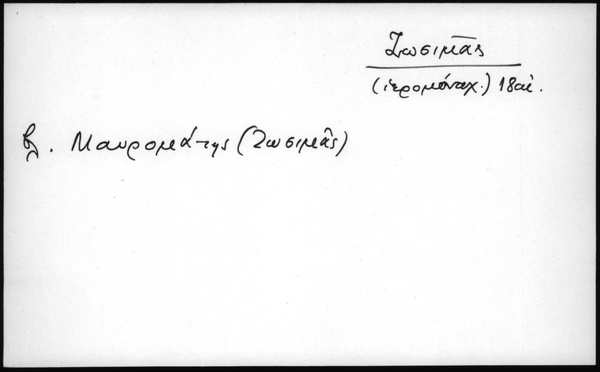 Ζωσιμᾶς
(ἱερομόναχ.) 18 αἰ.
βλ. Μαυρομάτης (Ζωσιμᾶς)